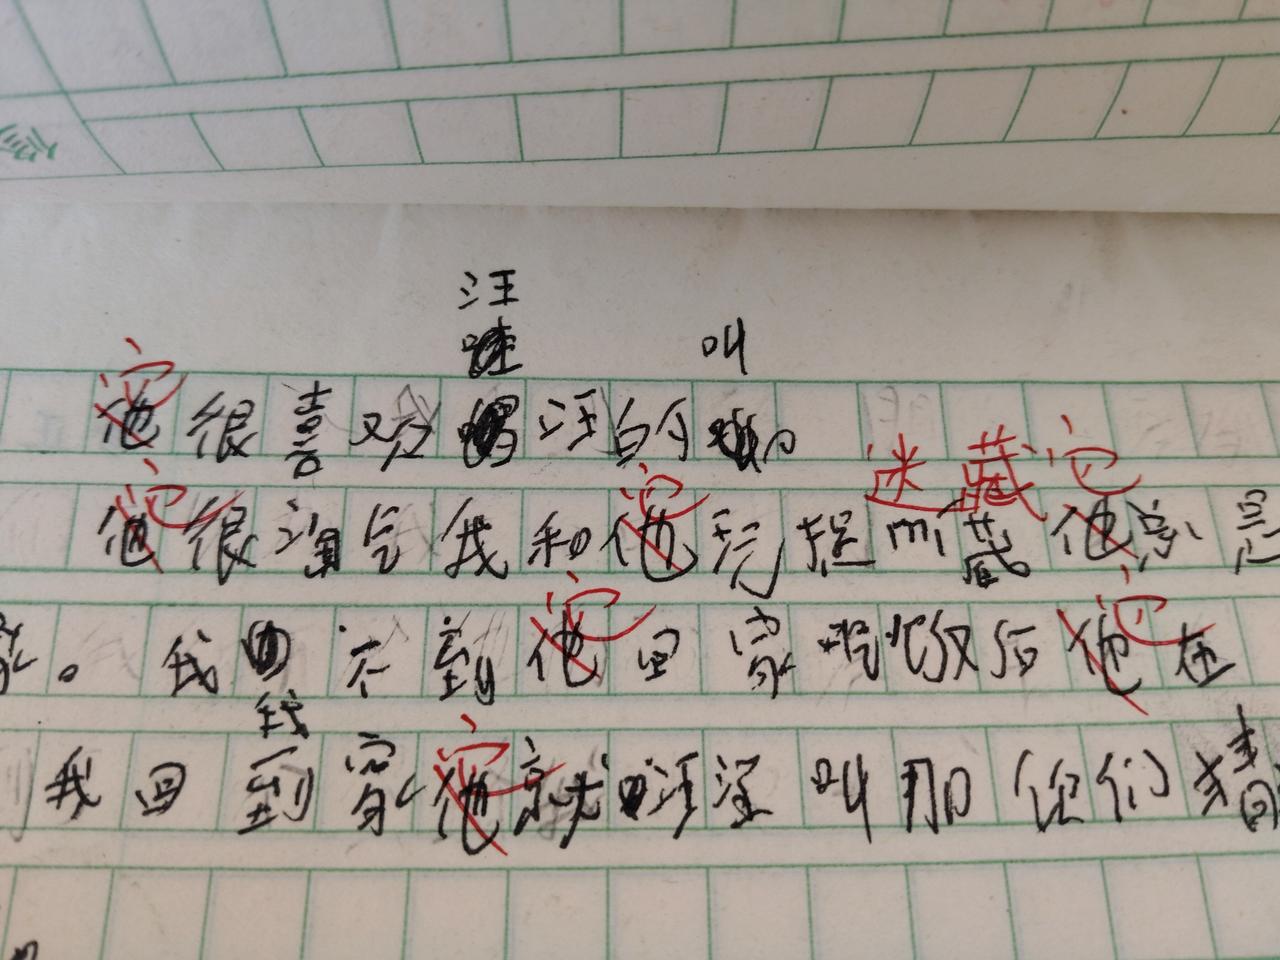 汪
叫
它
他很喜欢汪的叫
迷藏它
它 它
他很淘气我和他玩捉mí藏他忘
它 它
家。我找不到他回家吃饭后他在
找
它
我回到家他就汪汪叫那你们猜